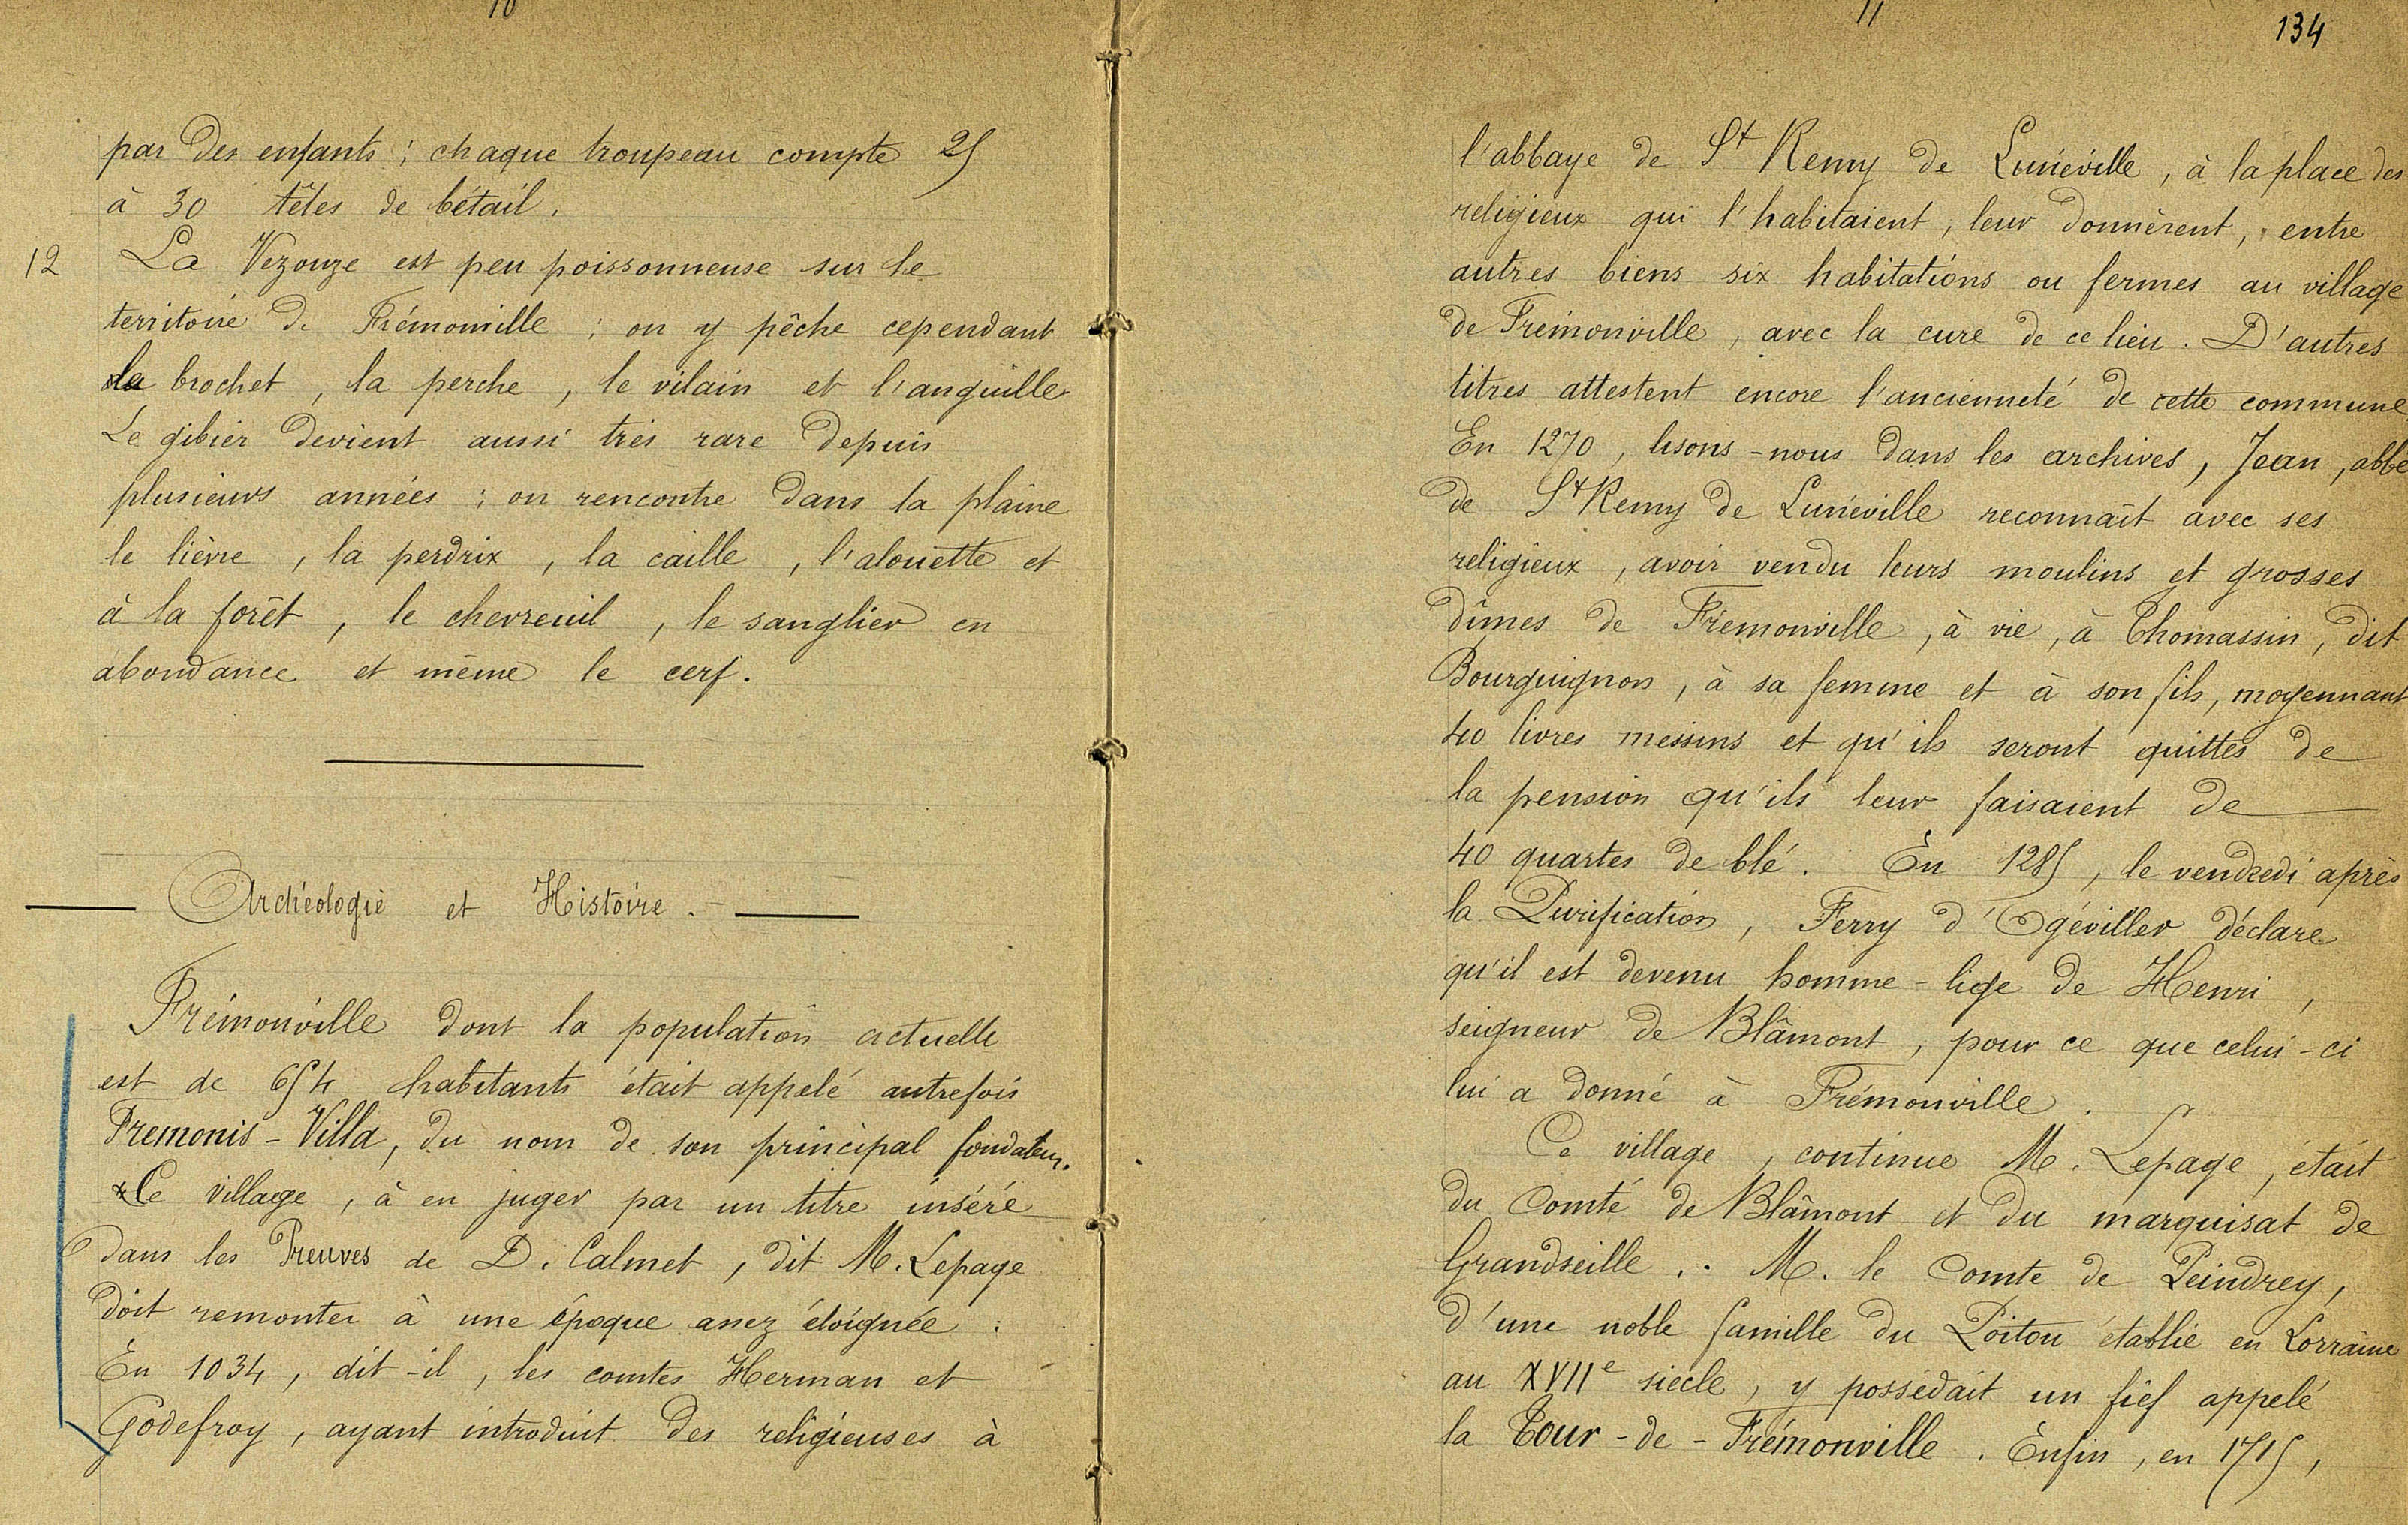 10
par des enfants ; chaque troupeau compte 25
à 30 têtes de bétail.
12 La Vezouze est peu poissonneuse sur le
territoire de Frémonville ; on y pêche cependant
le brochet, la perche, le vilain et l'anguille
Le gibier devient aussi très rare depuis
plusieurs années ; on rencontre dans la plaine
le lièvre, la perdrix, la caille, l'alouette et
à la forêt, le chevreuil, le sanglier en
abondance et même le cerf.
Archéologie et Histoire.
Frémonville dont la population actuelle
est de 654 habitants était appelé autrefois
Fremonis-Villa, du nom de son principal fondateur.
Ce village, à en juger par un titre inséré
dans les Preuves de D. Calmet, dit M. Lepage
doit remonter à une époque assez éloignée :
En 1034, dit-il, les comtes Herman et
Godefroy, ayant introduit des religieuses à
11
134
l'abbaye de St Remy de Lunéville, à la place des
religieux qui l'habitaient, leur donnèrent, entre
autres biens six habitations ou fermes au village
de Frémonville, avec la cure de ce lieu. D'autres
titres attestent encore l'ancienneté de cette commune
En 1270, lisons-nous dans les archives, Jean, abbé
de St Remy de Lunéville reconnaît avec ses
religieux, avoir vendu leurs moulins et grosses
dîmes de Frémonville, à vie, à Thomassin, dit
Bourguignon, à sa femme et à son fils, moyennant
40 livres messins et qu'ils seront quittes de
la pension qu'ils leur faisaient de
40 quartes de blé. En 1285, le vendredi après
la Purification, Ferry d'Ogéviller déclare
qu'il est devenu homme-lige de Henri,
seigneur de Blâmont, pour ce que celui-ci
lui a donné à Frémonville.
Ce village, continue M. Lepage, était
du Comté de Blâmont et du marquisat de
Grandseille. M. le Comte de Peindrey,
d'une noble famille du Poitou établie en Lorraine
au XVIIe siècle, y possédait un fief appelé
la Tour-de-Frémonville. Enfin, en 1715,